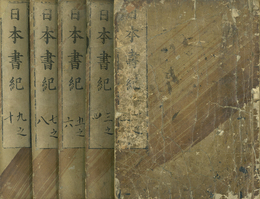 日本書紀
日本書紀 三之四
日本書紀 五之六
日本書紀 七之八
日本書紀 九之十